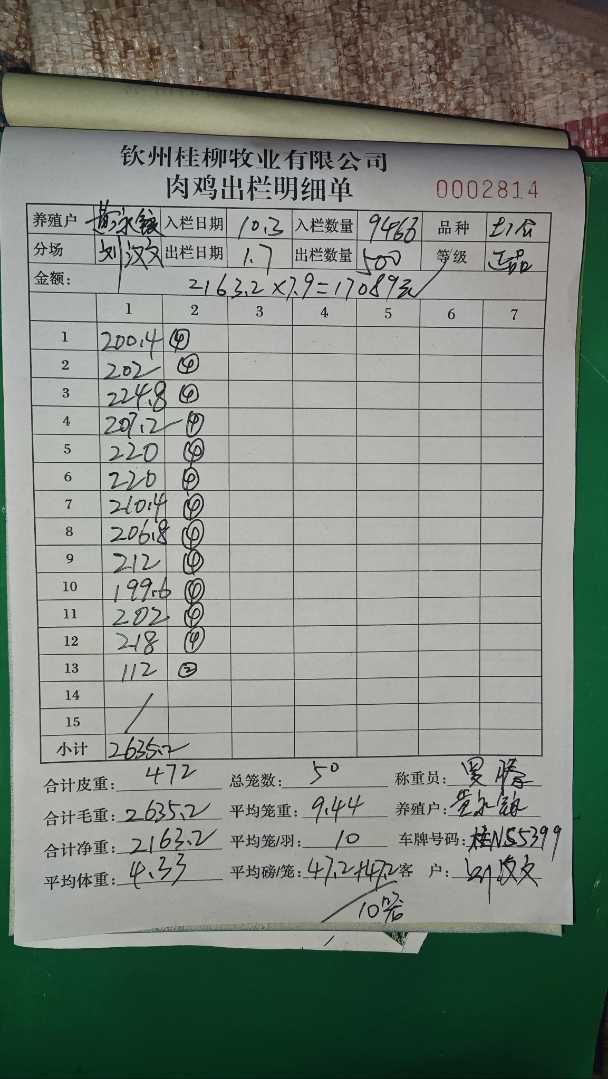 钦州桂柳牧业有限公司
肉鸡出栏明细单 0002814
养殖户 入栏日期 10.3 入栏数量 9463 品种
分场 刘汉文 出栏日期 1.7 出栏数量 500 等级 正品
金额: 2163.2×7.9=17089元
1 2 3 4 5 6 7
1 200.4 ④
2 202 ④
3 224.8 ④
4 207.2 ④
5 220 ④
6 220 ④
7 210.4 ④
8 206.8 ④
9 212 ④
10 199.6 ④
11 202 ④
12 218 ④
13 112 ②
14
15
小计 2635.2
合计皮重: 472 总笼数: 50 称重员:
合计毛重: 2635.2 平均笼重: 9.44 养殖户:
合计净重: 2163.2 平均笼/羽: 10 车牌号码: 桂NS5399
平均体重: 4.33 平均磅/笼: 47.2+47.2 客户: 刘汉文
10笼